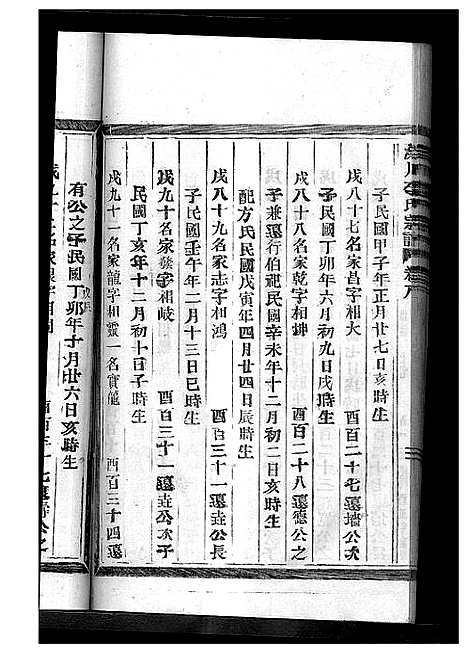 宗譜 卷八
子民國甲子年正月廿七日亥時生
戌八十七名家昌字相大 酉百二十七遠墻公次
子民國丁卯年六月初九日戌時生
戌八十八名家乾字相鉀 酉百二十八遠德公之
子兼遠行伯祀民國辛未年十二月初二日亥時生
配方氏民國戊寅年四月廿四日辰時生
戌八十九名家志字相鴻 酉百三十一遠垚公長
子民國壬午年二月十三日巳時生
戌九十名家發字相岐 酉百三十一遠垚公次子
民國丁亥年十二月初十日子時生
戌九十一名家龍字相靈一名寶龍 酉百三十四遠
有公之子民國丁卯年十月廿六日亥時生